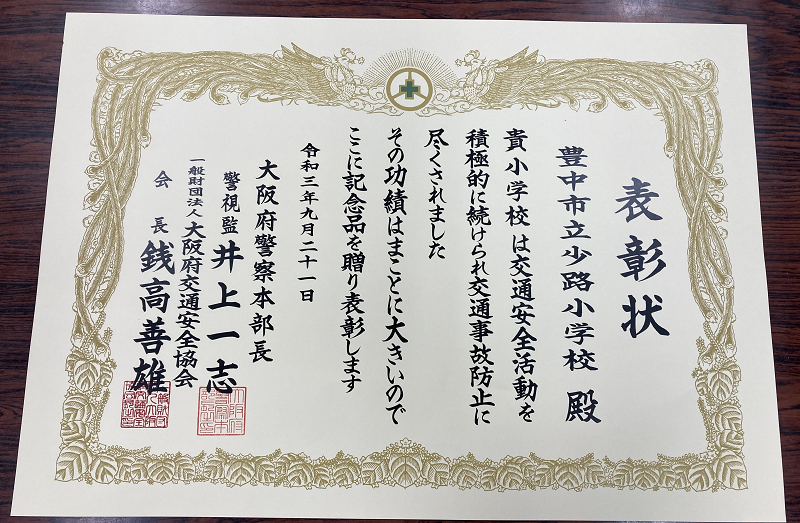 表彰状
豊中市立少路小学校 殿
貴小学校は交通安全活動を
積極的に続けられ交通事故防止に
尽くされました
その功績はまことに大きいので
ここに記念品を贈り表彰します
令和三年九月二十一日
大阪府警察本部長
警視監 井上一志
一般財団法人 大阪府交通安全協会
会長 銭高善雄